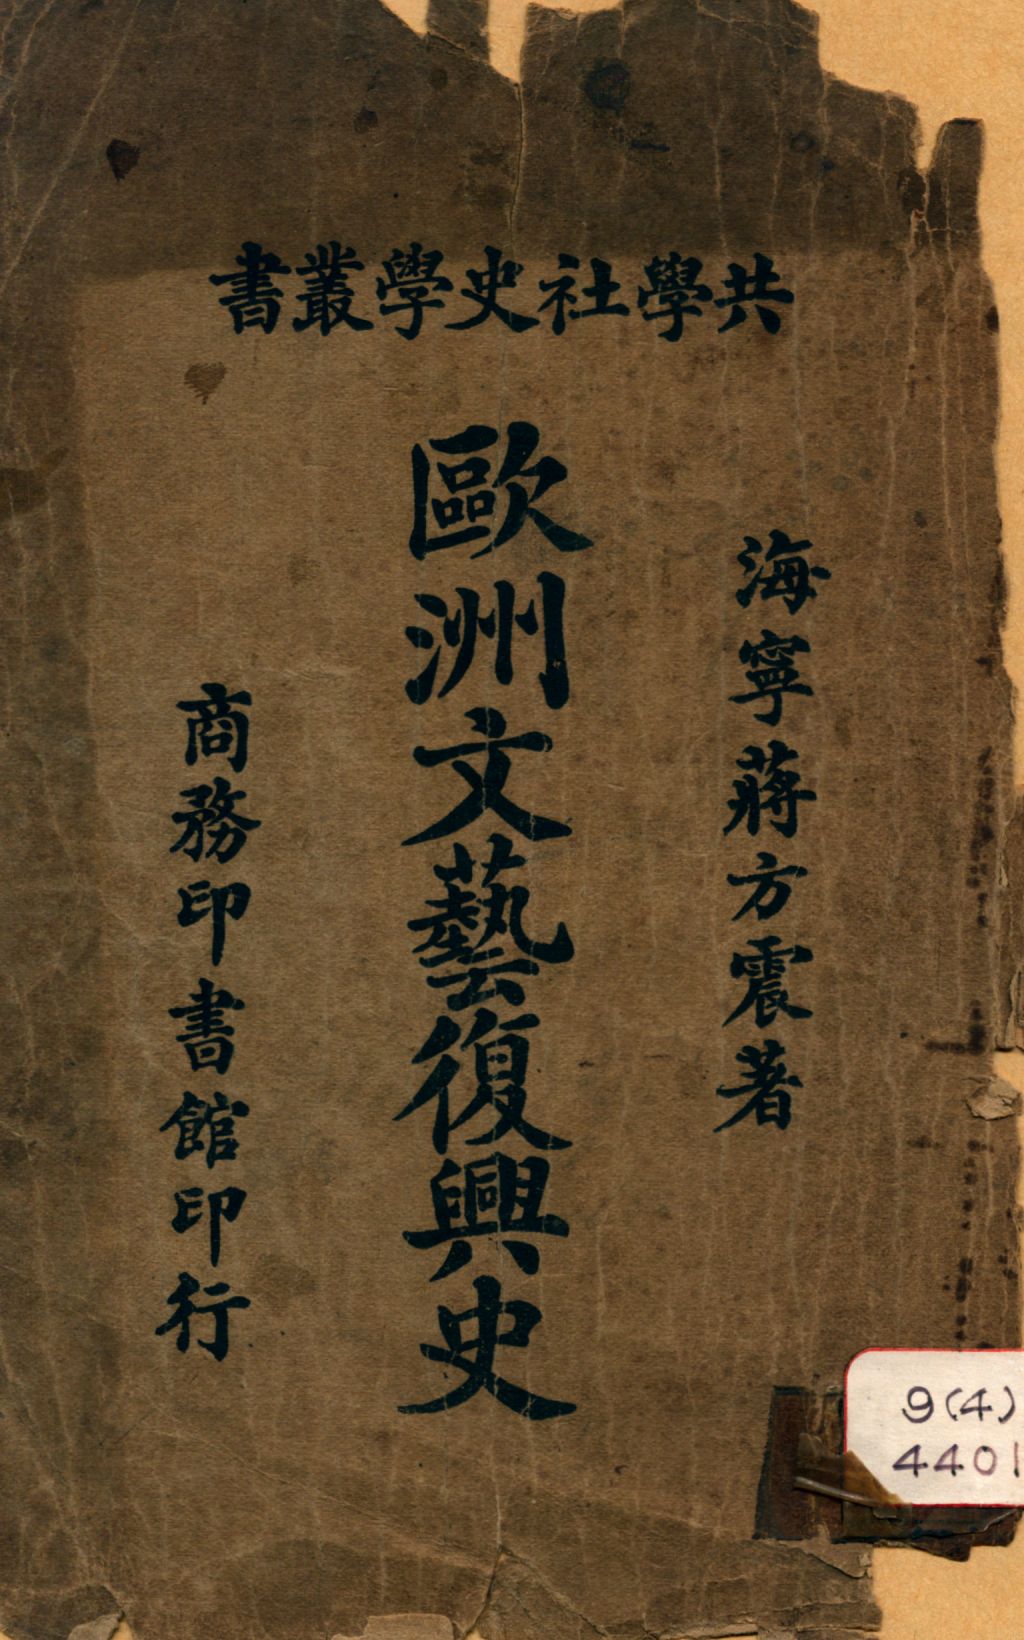 共學社史學叢書
海寧蔣方震著
歐洲文藝復興史
商務印書館印行
9(4)
4401